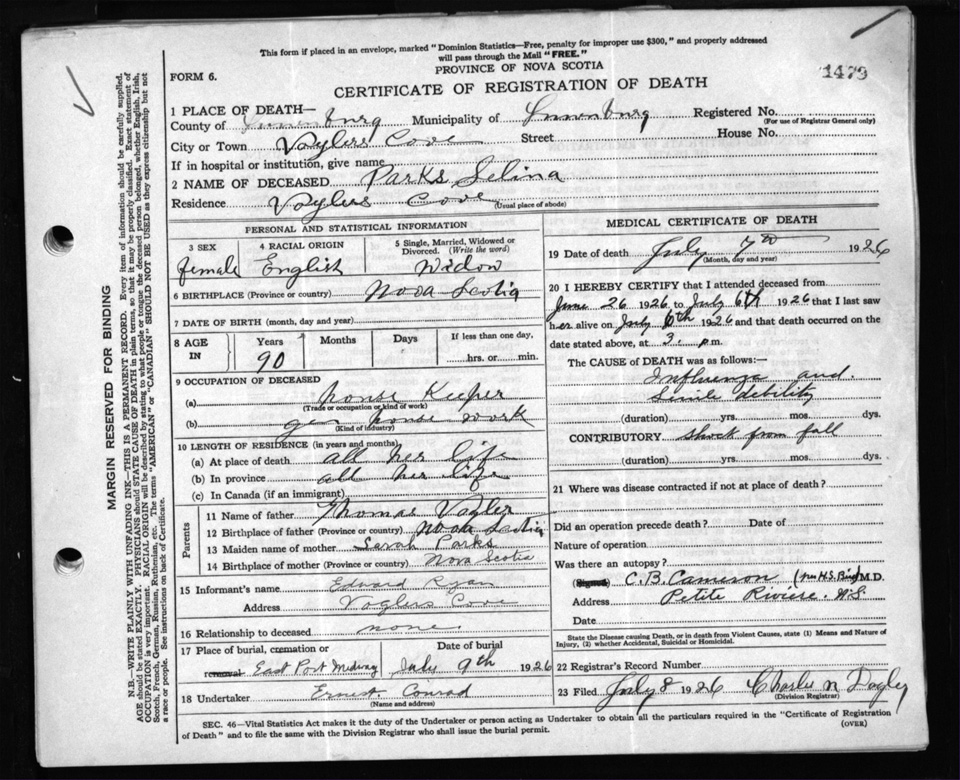 This form if placed in an envelope, marked "Dominion Statistics—Free, penalty for improper use $300," and properly addressed
will pass through the Mail "FREE."
PROVINCE OF NOVA SCOTIA
FORM 6.
1479
CERTIFICATE OF REGISTRATION OF DEATH
1 PLACE OF DEATH—
County of Lunenburg Municipality of Lunenburg Registered No.
(For use of Registrar General only)
City or Town Voglers Cove Street House No.
If in hospital or institution, give name
2 NAME OF DECEASED Parks Selina
Residence Voglers Cove
(Usual place of abode)
PERSONAL AND STATISTICAL INFORMATION
3 SEX 4 RACIAL ORIGIN 5 Single, Married, Widowed or
Divorced. (Write the word)
female English Widow
6 BIRTHPLACE (Province or country) Nova Scotia
7 DATE OF BIRTH (month, day and year)
8 AGE IN Years Months Days If less than one day,
90 hrs. or min.
9 OCCUPATION OF DECEASED
(a) house Keeper
(Trade or occupation or kind of work)
(b) gen house work
(Kind of industry)
10 LENGTH OF RESIDENCE (in years and months)
(a) At place of death all her life
(b) In province all her life
(c) In Canada (if an immigrant)
Parents
11 Name of father Thomas Vogler
12 Birthplace of father (Province or country) Nova Scotia
13 Maiden name of mother Sarah Parks
14 Birthplace of mother (Province or country) Nova Scotia
15 Informant's name Edward Ryan
Address Voglers Cove
16 Relationship to deceased none
17 Place of burial, cremation or removal Date of burial
East Port Medway July 9th 1926
18 Undertaker Ernest Conrad
(Name and address)
MEDICAL CERTIFICATE OF DEATH
19 Date of death July 7th 1926
(Month, day and year)
20 I HEREBY CERTIFY that I attended deceased from
June 26 1926 to July 6th 1926 that I last saw
her alive on July 6th 1926 and that death occurred on the
date stated above, at 2. p.m.
The CAUSE of DEATH was as follows:—
Influenza and
Senile debility
(duration) yrs. mos. dys.
CONTRIBUTORY Shock from fall
(duration) yrs. mos. dys.
21 Where was disease contracted if not at place of death?
Did an operation precede death? Date of
Nature of operation
Was there an autopsy?
C. B. Cameron (per H.S. M.D.
Address Petite Riviere. N.S.
Date
State the Disease causing Death, or in death from Violent Causes, state (1) Means and Nature of
Injury, (2) whether Accidental, Suicidal or Homicidal.
22 Registrar's Record Number
23 Filed July 8 1926 Charles N
(Division Registrar)
SEC. 46—Vital Statistics Act makes it the duty of the Undertaker or person acting as Undertaker to obtain all the particulars required in the "Certificate of Registration
of Death" and to file the same with the Division Registrar who shall issue the burial permit.
(OVER)
MARGIN RESERVED FOR BINDING
N.B.—WRITE PLAINLY WITH UNFADING INK—THIS IS A PERMANENT RECORD. Every item of information should be carefully supplied.
AGE should be stated EXACTLY. PHYSICIANS should STATE CAUSE OF DEATH in plain terms, so that it may be properly classified. Exact statement of
OCCUPATION is very important. RACIAL ORIGIN will be described by stating to what people or tongue the deceased person belonged, whether English, Irish,
Scotch, French, German, Russian, Ruthenian, etc. The terms "AMERICAN" or "CANADIAN" SHOULD NOT BE USED as they express citizenship but not
a race or people. See instructions on back of Certificate.